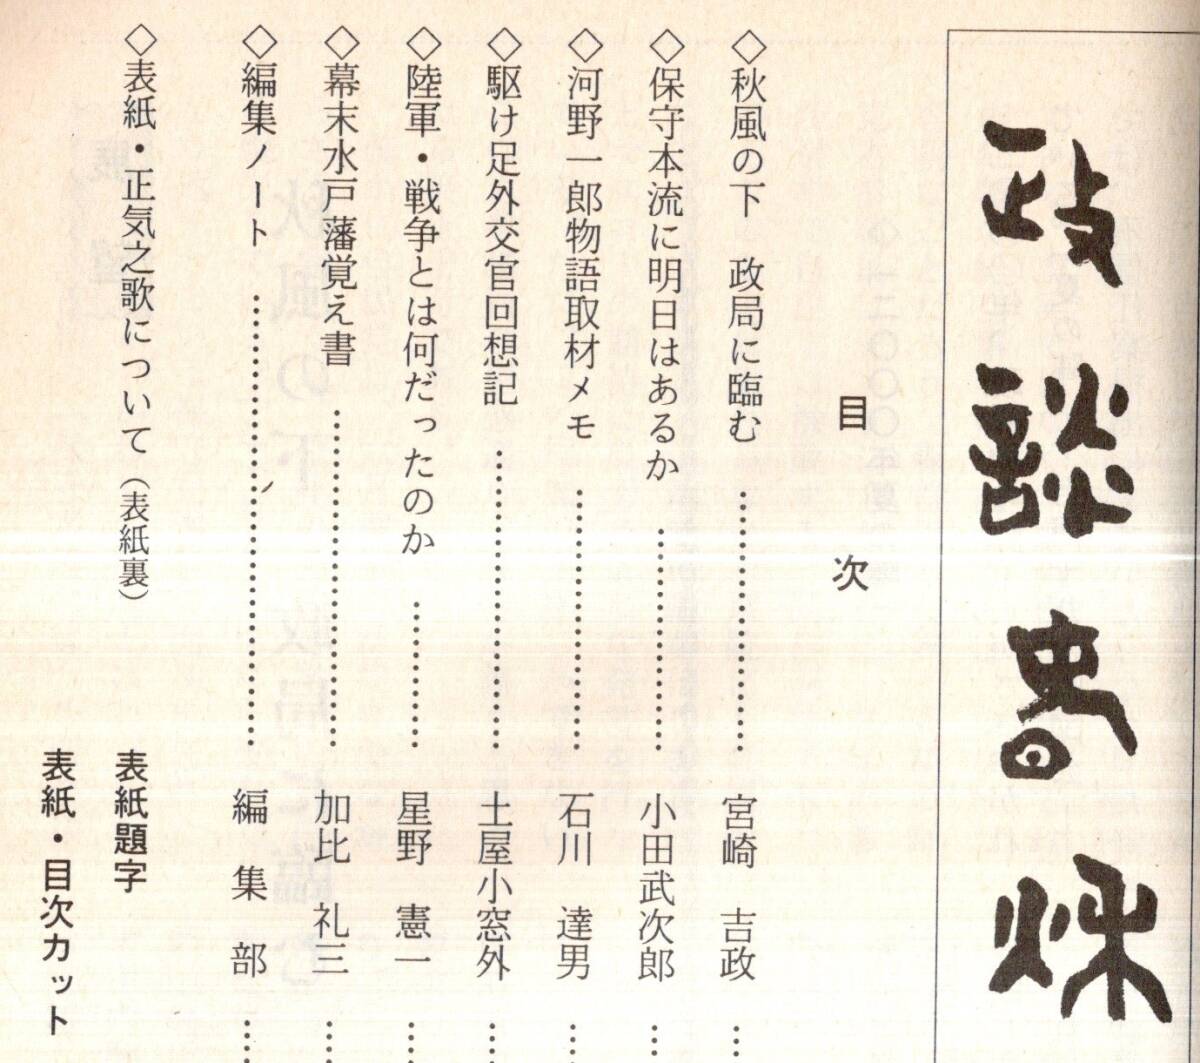 政談春秋
目次
◇秋風の下 政局に臨む……宮崎 吉政……
◇保守本流に明日はあるか……小田武次郎……
◇河野一郎物語取材メモ……石川 達男……
◇駆け足外交官回想記……土屋小窓外……
◇陸軍・戦争とは何だったのか……星野 憲一……
◇幕末水戸藩覚え書……加比 礼三……
◇編集ノート……編集部……
◇表紙・正気之歌について(表紙裏)
表紙題字
表紙・目次カット